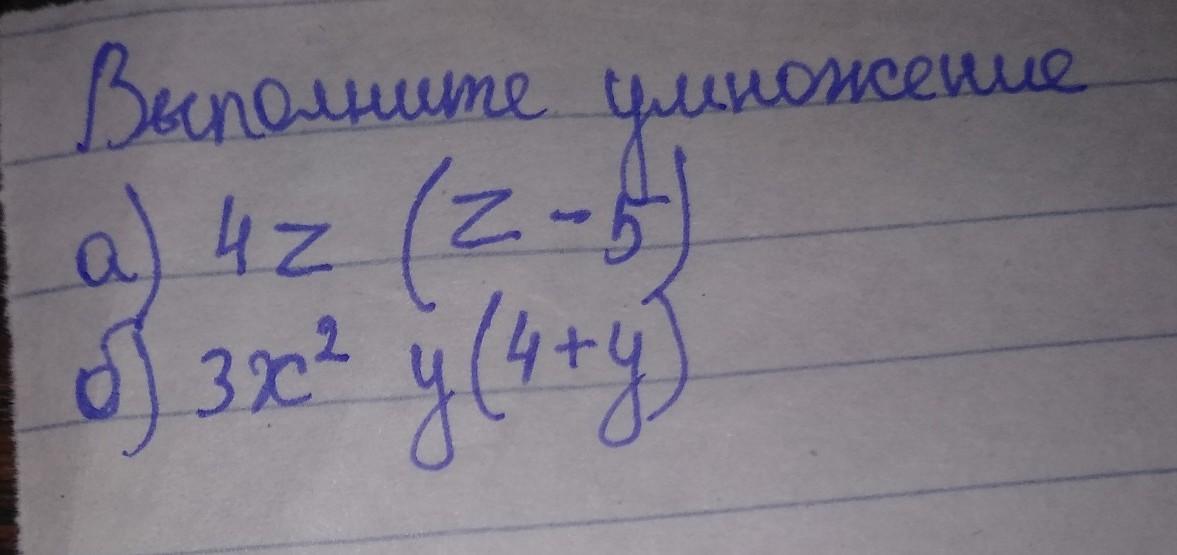 Выполните умножение
а) 4z (z - 5)
б) 3x² y(4+y)